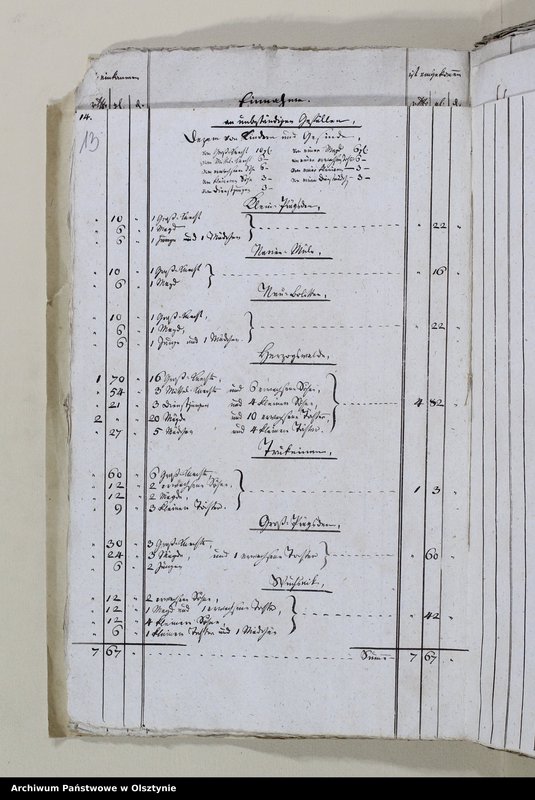 einkommen
ist eingekommen
rthl. gl. d.
Einnahme.
rthl. gl. d.
14.
13
an unbeständigen Gefällen,
Dezem von Kindern und Gesinde,
von Groß-Knecht 10 gl. von einer Magd 6 gl.
von Mittel-Knecht 6 –
von erwachsenen 6 –
von kleinen Sohn 3 – 3 –
von Dienstjungen 3 –
Klein-
" 10 " 1 Groß-Knecht
" 6 " 1 Magd " 22 "
" 6 " 1 Junge und 1 Mädchen
" 10 " 1 Groß-Knecht " 16 "
" 6 " 1 Magd
Neu-Bolitten,
" 10 " 1 Groß-Knecht,
" 6 " 1 Magd, " 22 "
" 6 " 1 Junge und 1 Mädchen.
Herzogswalde,
1 70 " 16 Groß-Knechte,
" 54 " 3 Mittel-Knechte und 6 erwachsene Söhne,
" 21 " 3 Dienstjungen und 4 kleinen Söhne, 4 82 "
2 " " 20 Mägde und 10 erwachsene Töchter,
" 27 " 5 Mädchen und 4 kleinen Töchter.
" 60 " 6 Groß-Knechte,
" 12 " 2 erwachsene Söhne,
" 12 " 2 Mägde, 1 3 "
" 9 " 3 kleinen Töchter.
Groß-
" 30 " 3 Groß-Knechte
" 24 " 3 Mägde, und 1 erwachsene Tochter " 60 "
" 6 " 2 Jungen
" 12 " 2 erwachsene Söhne,
" 12 " 1 Magd und 1 erwachsene Tochter,
" 12 " 4 kleinen Söhne, " 42 "
" 6 " 1 kleinen Tochter und 1 Mädchen
7 67 " Summe 7 67 "
Archiwum Państwowe w Olsztynie